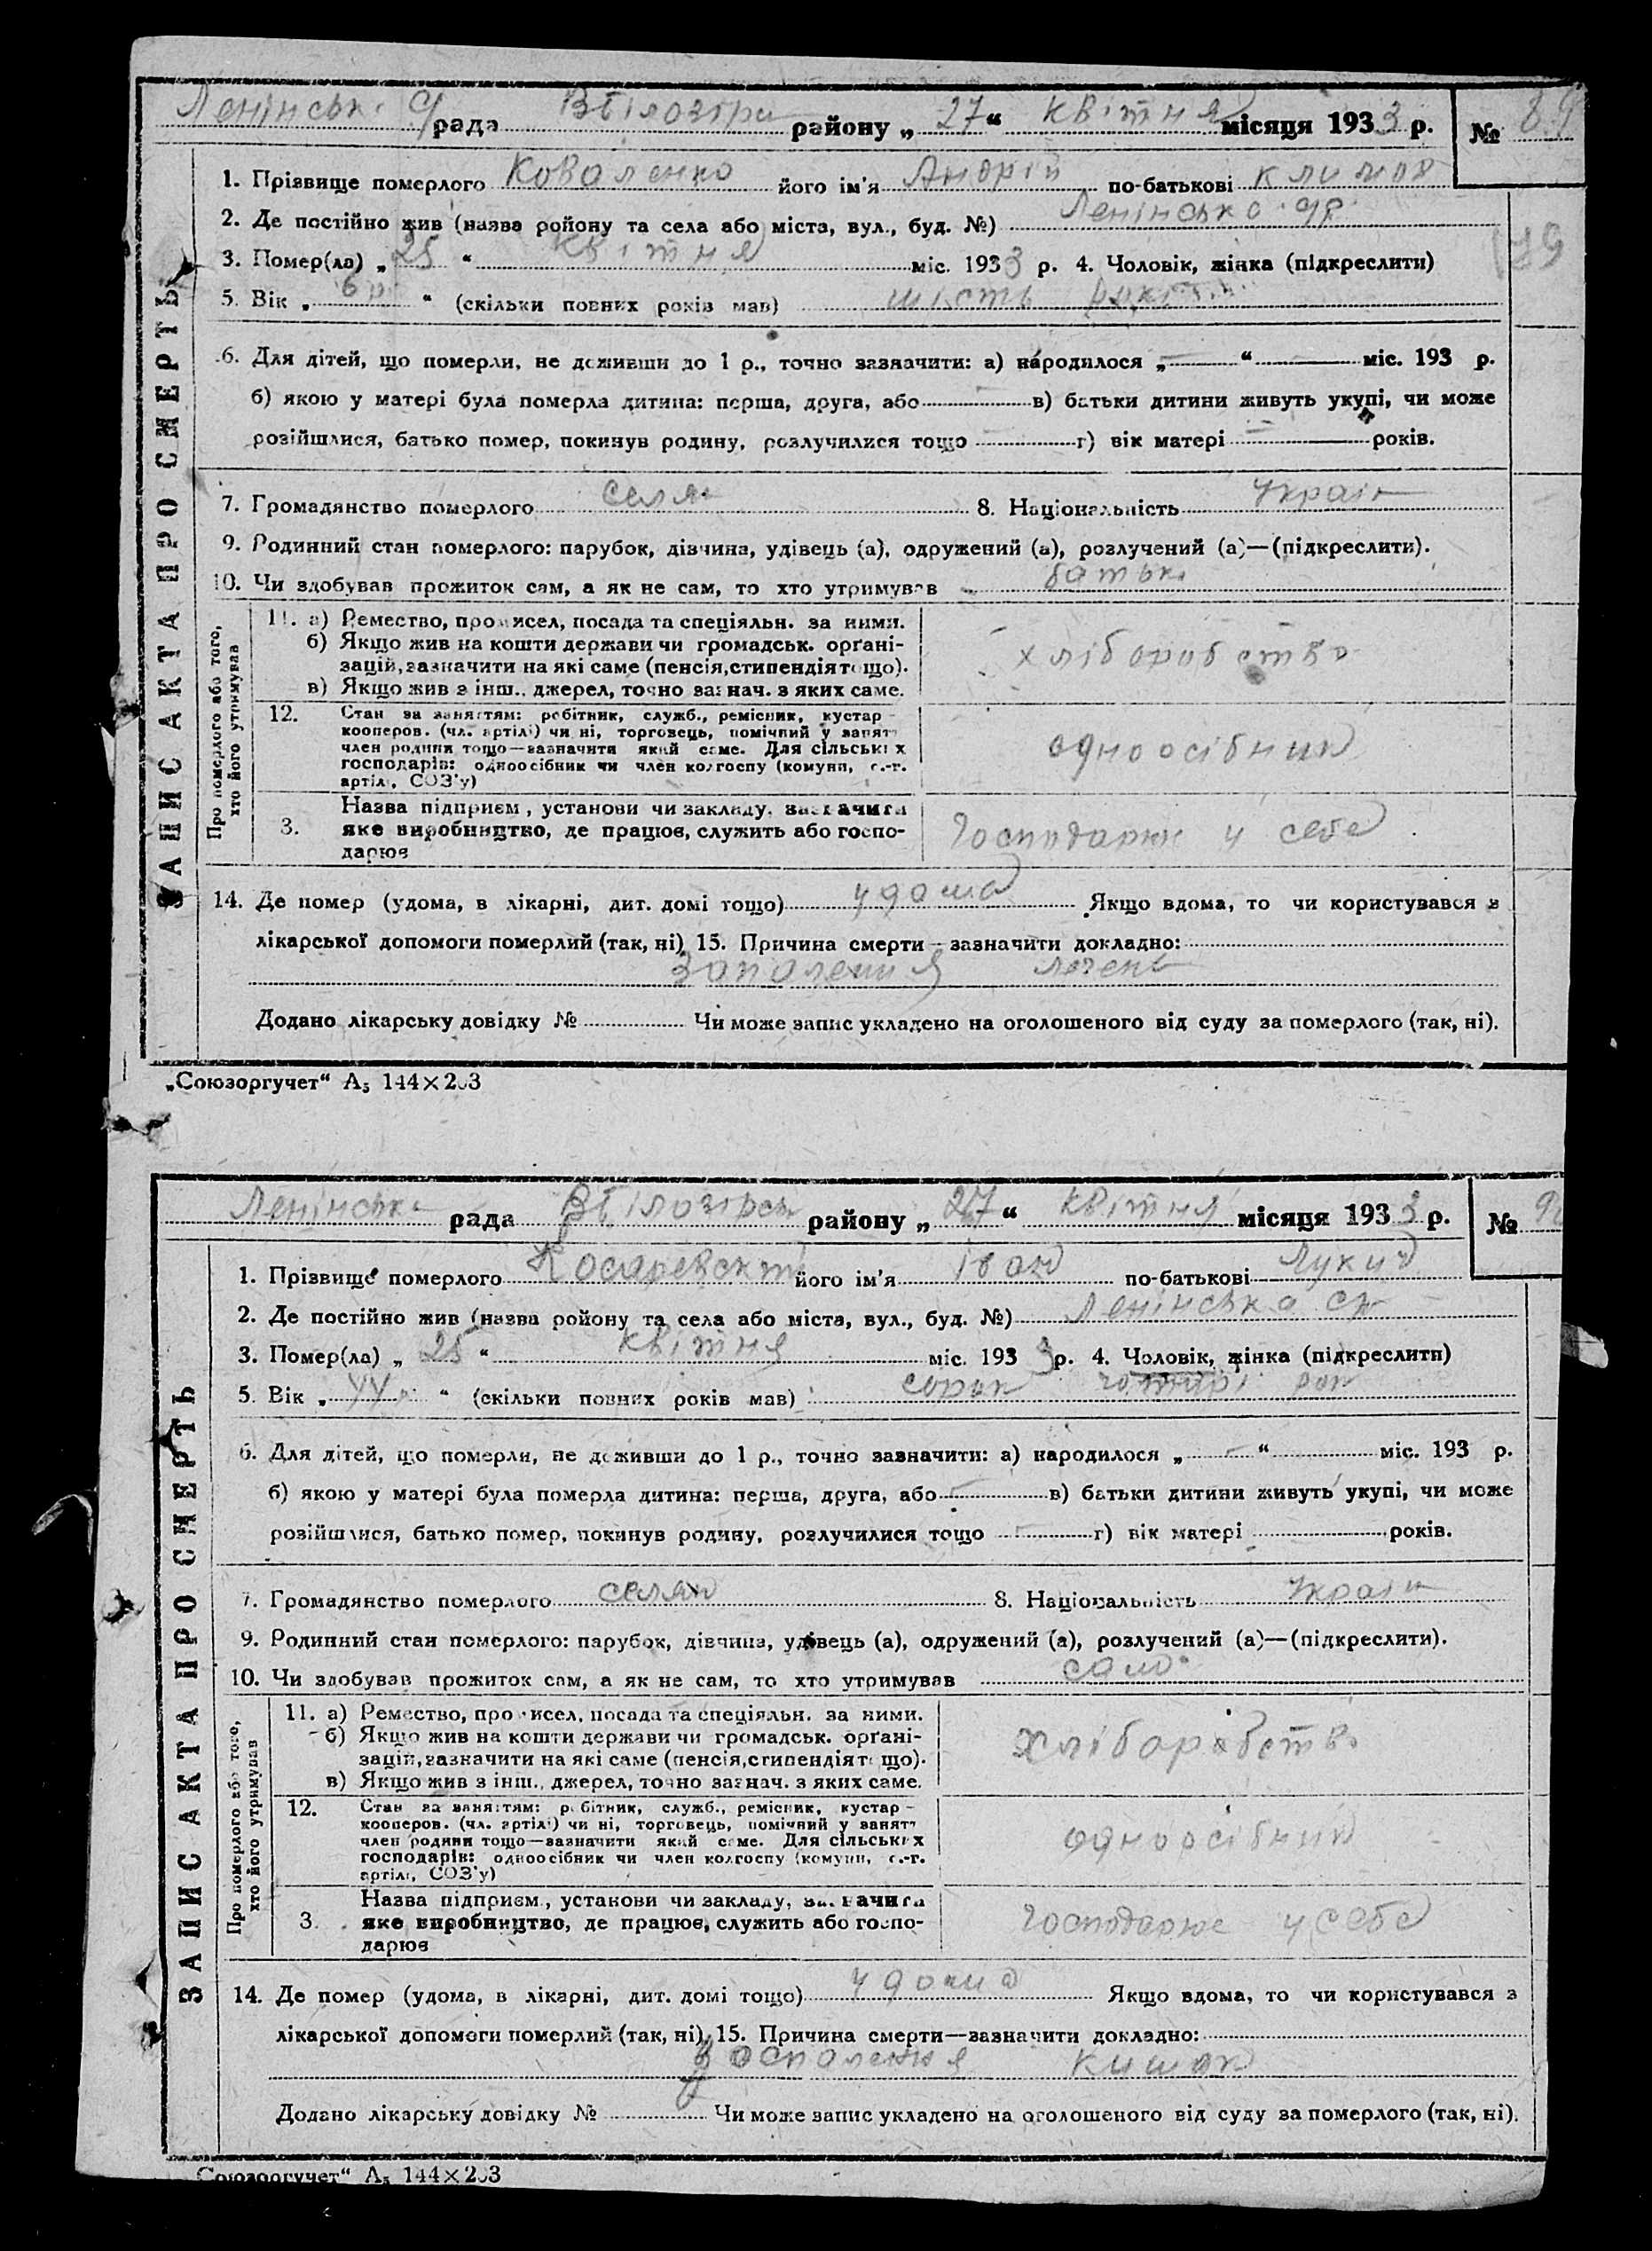 Ленінськ. С/рада В Білозірк району „27“ квітня місяця 1933 р. № 89
1. Прізвище померлого Коваленко його ім'я Андрій по-батькові Климов
2. Де постійно жив (назва ройону та села або міста, вул., буд. №) Ленінська
3. Помер(ла) „25“ квітня міс. 1933 р. 4. Чоловік, жінка (підкреслити)
5. Вік „6 р“ (скільки повних років мав) шість років
6. Для дітей, що померли, не доживши до 1 р., точно зазначити: а) народилося „—“ — міс. 193 р.
б) якою у матері була померла дитина: перша, друга, або — в) батьки дитини живуть укупі, чи може
розійшлися, батько помер, покинув родину, розлучилися тощо — г) вік матері — років.
7. Громадянство померлого селян 8. Національність Україн
9. Родинний стан померлого: парубок, дівчина, удівець (а), одружений (а), розлучений (а)—(підкреслити).
10. Чи здобував прожиток сам, а як не сам, то хто утримував батьк.
ЗАПИС АКТА ПРО СМЕРТЬ
Про померлого або того, хто його утримував
11. а) Ремество, промисел, посада та спеціяльн. за ними.
б) Якщо жив на кошти держави чи громадськ. орґані-
зацій, зазначити на які саме (пенсія, стипендія тощо).
в) Якщо жив з інш., джерел, точно зазнач. з яких саме.
хліборобство
12. Стан за заняттям: робітник, служб., ремісник, кустар -
кооперов. (чл. артілі) чи ні, торговець, помічний у занятт
член родини тощо—зазначити який саме. Для сільських
господарів: одноосібник чи член колгоспу (комуни, с.-г.
артілі, СОЗ'у)
одноосібник
3. Назва підприєм., установи чи закладу, зазначити
яке виробництво, де працює, служить або госпо-
дарює
Господарює у себе
14. Де помер (удома, в лікарні, дит. домі тощо) удома Якщо вдома, то чи користувався з
лікарської допомоги померлий (так, ні) 15. Причина смерти—зазначити докладно:
Запалення легень
Додано лікарську довідку № Чи може запис укладено на оголошеного від суду за померлого (так, ні).
„Союзоргучет“ А5 144×203
179
Ленінська рада В Білозірськ району „27“ квітня місяця 1933 р. №
1. Прізвище померлого Косаревский його ім'я Іван по-батькові Лукич
2. Де постійно жив (назва ройону та села або міста, вул., буд. №) Ленінська ср
3. Помер(ла) „25“ квітня міс. 1933 р. 4. Чоловік, жінка (підкреслити)
5. Вік „44 р“ (скільки повних років мав) сорок чотирі рок
6. Для дітей, що померли, не доживши до 1 р., точно зазначити: а) народилося „—“ міс. 193 р.
б) якою у матері була померла дитина: перша, друга, або — в) батьки дитини живуть укупі, чи може
розійшлися, батько помер, покинув родину, розлучилися тощо — г) вік матері років.
7. Громадянство померлого селян 8. Національність Україн
9. Родинний стан померлого: парубок, дівчина, удівець (а), одружений (а), розлучений (а)—(підкреслити).
10. Чи здобував прожиток сам, а як не сам, то хто утримував сам
ЗАПИС АКТА ПРО СМЕРТЬ
Про померлого або того, хто його утримував
11. а) Ремество, промисел, посада та спеціяльн. за ними.
б) Якщо жив на кошти держави чи громадськ. орґані-
зацій, зазначити на які саме (пенсія, стипендія тощо).
в) Якщо жив з інш., джерел, точно зазнач. з яких саме.
хліборобств.
12. Стан за заняттям: робітник, служб., ремісник, кустар -
кооперов. (чл. артілі) чи ні, торговець, помічний у занятт
член родини тощо—зазначити який саме. Для сільських
господарів: одноосібник чи член колгоспу (комуни, с.-г.
артілі, СОЗ'у)
одноосібник
3. Назва підприєм., установи чи закладу, зазначити
яке виробництво, де працює, служить або госпо-
дарює
Господарює у себе
14. Де помер (удома, в лікарні, дит. домі тощо) удома Якщо вдома, то чи користувався з
лікарської допомоги померлий (так, ні) 15. Причина смерти—зазначити докладно:
Воспалення кишок
Додано лікарську довідку № Чи може запис укладено на оголошеного від суду за померлого (так, ні).
Союзоргучет“ А5 144×203